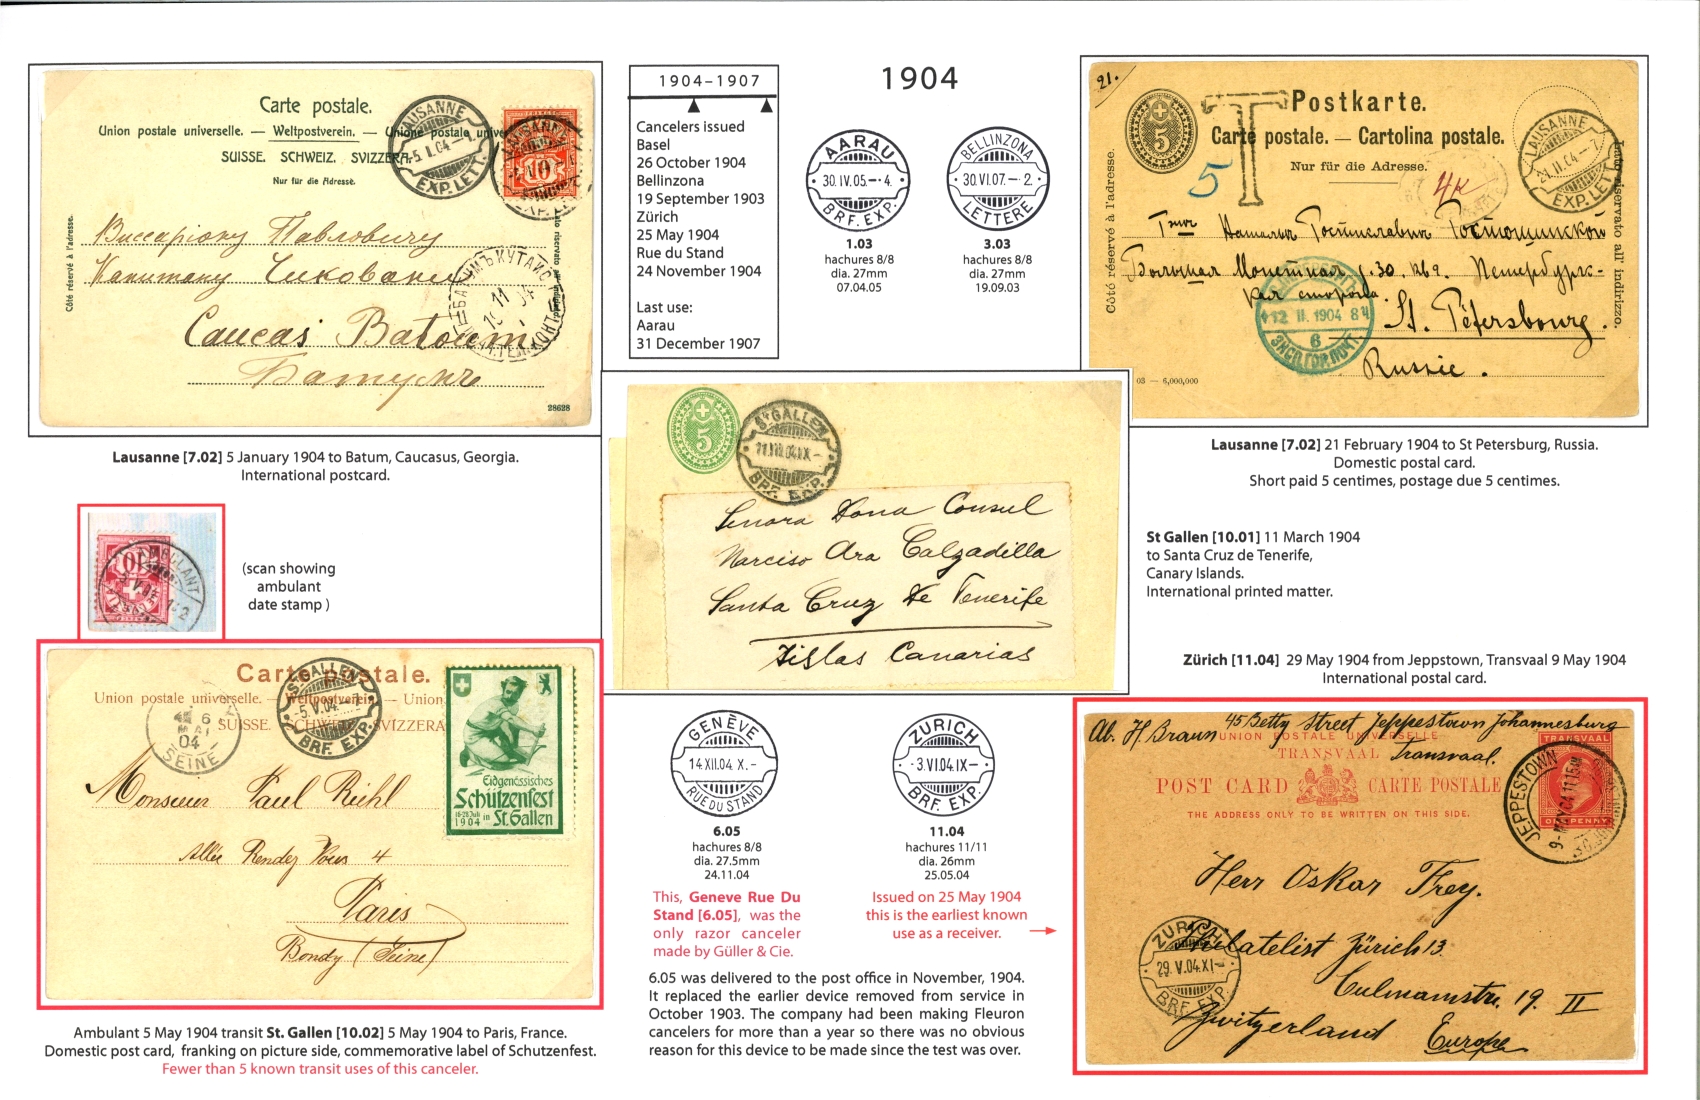 1904
1904–1907
Cancelers issued
Basel
26 October 1904
Bellinzona
19 September 1903
Zürich
25 May 1904
Rue du Stand
24 November 1904
Last use:
Aarau
31 December 1907
AARAU
30.IV.05.–·4.
BRF. EXP.
1.03
hachures 8/8
dia. 27mm
07.04.05
BELLINZONA
30.VI.07.–·2.
LETTERE
3.03
hachures 8/8
dia. 27mm
19.09.03
Carte postale.
Union postale universelle. — Weltpostverein. — Unione postale univer
SUISSE. SCHWEIZ. SVIZZERA.
Nur für die Adresse.
Côté réservé à l'adresse.
LAUSANNE
-5.I.04.–
EXP. LET.
10
Виссаріону Павловичу
Капитану Чиковани
Caucas Batoum
Батумъ
28628
Lausanne [7.02] 5 January 1904 to Batum, Caucasus, Georgia.
International postcard.
21.
Postkarte.
Carte postale. — Cartolina postale.
Nur für die Adresse.
Côté réservé à l'adresse.
Lato riservato all' indirizzo.
5
T
5
4к
LAUSANNE
21.II.04–7.
EXP. LET.
12 II. 1904
6
St. Pétersbourg.
Russie.
03 — 6,000,000
Lausanne [7.02] 21 February 1904 to St Petersburg, Russia.
Domestic postal card.
Short paid 5 centimes, postage due 5 centimes.
5
ST GALLEN
BRF. EXP.
Senora Dona Consul
Narciso Ara Calzadilla
Santa Cruz de Tenerife
Islas Canarias
St Gallen [10.01] 11 March 1904
to Santa Cruz de Tenerife,
Canary Islands.
International printed matter.
AMBULANT
10
(scan showing
ambulant
date stamp )
Carte postale.
Union postale universelle. — Weltpostverein. — Union
SUISSE. SCHWEIZ. SVIZZERA
6
MAI
04
SEINE
ST. GALLEN
-5.V.04.
BRF. EXP.
Eidgenössisches
Schützenfest
18-28 Juli
1904 in St. Gallen
Monsieur Paul Riehl
Allée Rendez Vous 4
Paris
Bondy (Seine)
Ambulant 5 May 1904 transit St. Gallen [10.02] 5 May 1904 to Paris, France.
Domestic post card, franking on picture side, commemorative label of Schutzenfest.
Fewer than 5 known transit uses of this canceler.
GENÈVE
14.XII.04 X.–
RUE DU STAND
6.05
hachures 8/8
dia. 27.5mm
24.11.04
This, Geneve Rue Du
Stand [6.05], was the
only razor canceler
made by Güller & Cie.
ZURICH
-3.VI.04.IX–
BRF. EXP.
11.04
hachures 11/11
dia. 26mm
25.05.04
Issued on 25 May 1904
this is the earliest known
use as a receiver.
6.05 was delivered to the post office in November, 1904.
It replaced the earlier device removed from service in
October 1903. The company had been making Fleuron
cancelers for more than a year so there was no obvious
reason for this device to be made since the test was over.
Zürich [11.04] 29 May 1904 from Jeppstown, Transvaal 9 May 1904
International postal card.
Ab. H. Braun 45 Betty Street Jeppestown Johannesburg
Transvaal.
UNION POSTALE UNIVERSELLE
TRANSVAAL
POST CARD CARTE POSTALE
THE ADDRESS ONLY TO BE WRITTEN ON THIS SIDE.
TRANSVAAL
ONE PENNY
JEPPESTOWN
9-MAY.04
Herr Oskar Frey.
Philatelist Zürich 13.
Culmannstr. 19. II
Zwitzerland Europe
ZURICH
29.V.04.XI–
BRF. EXP.